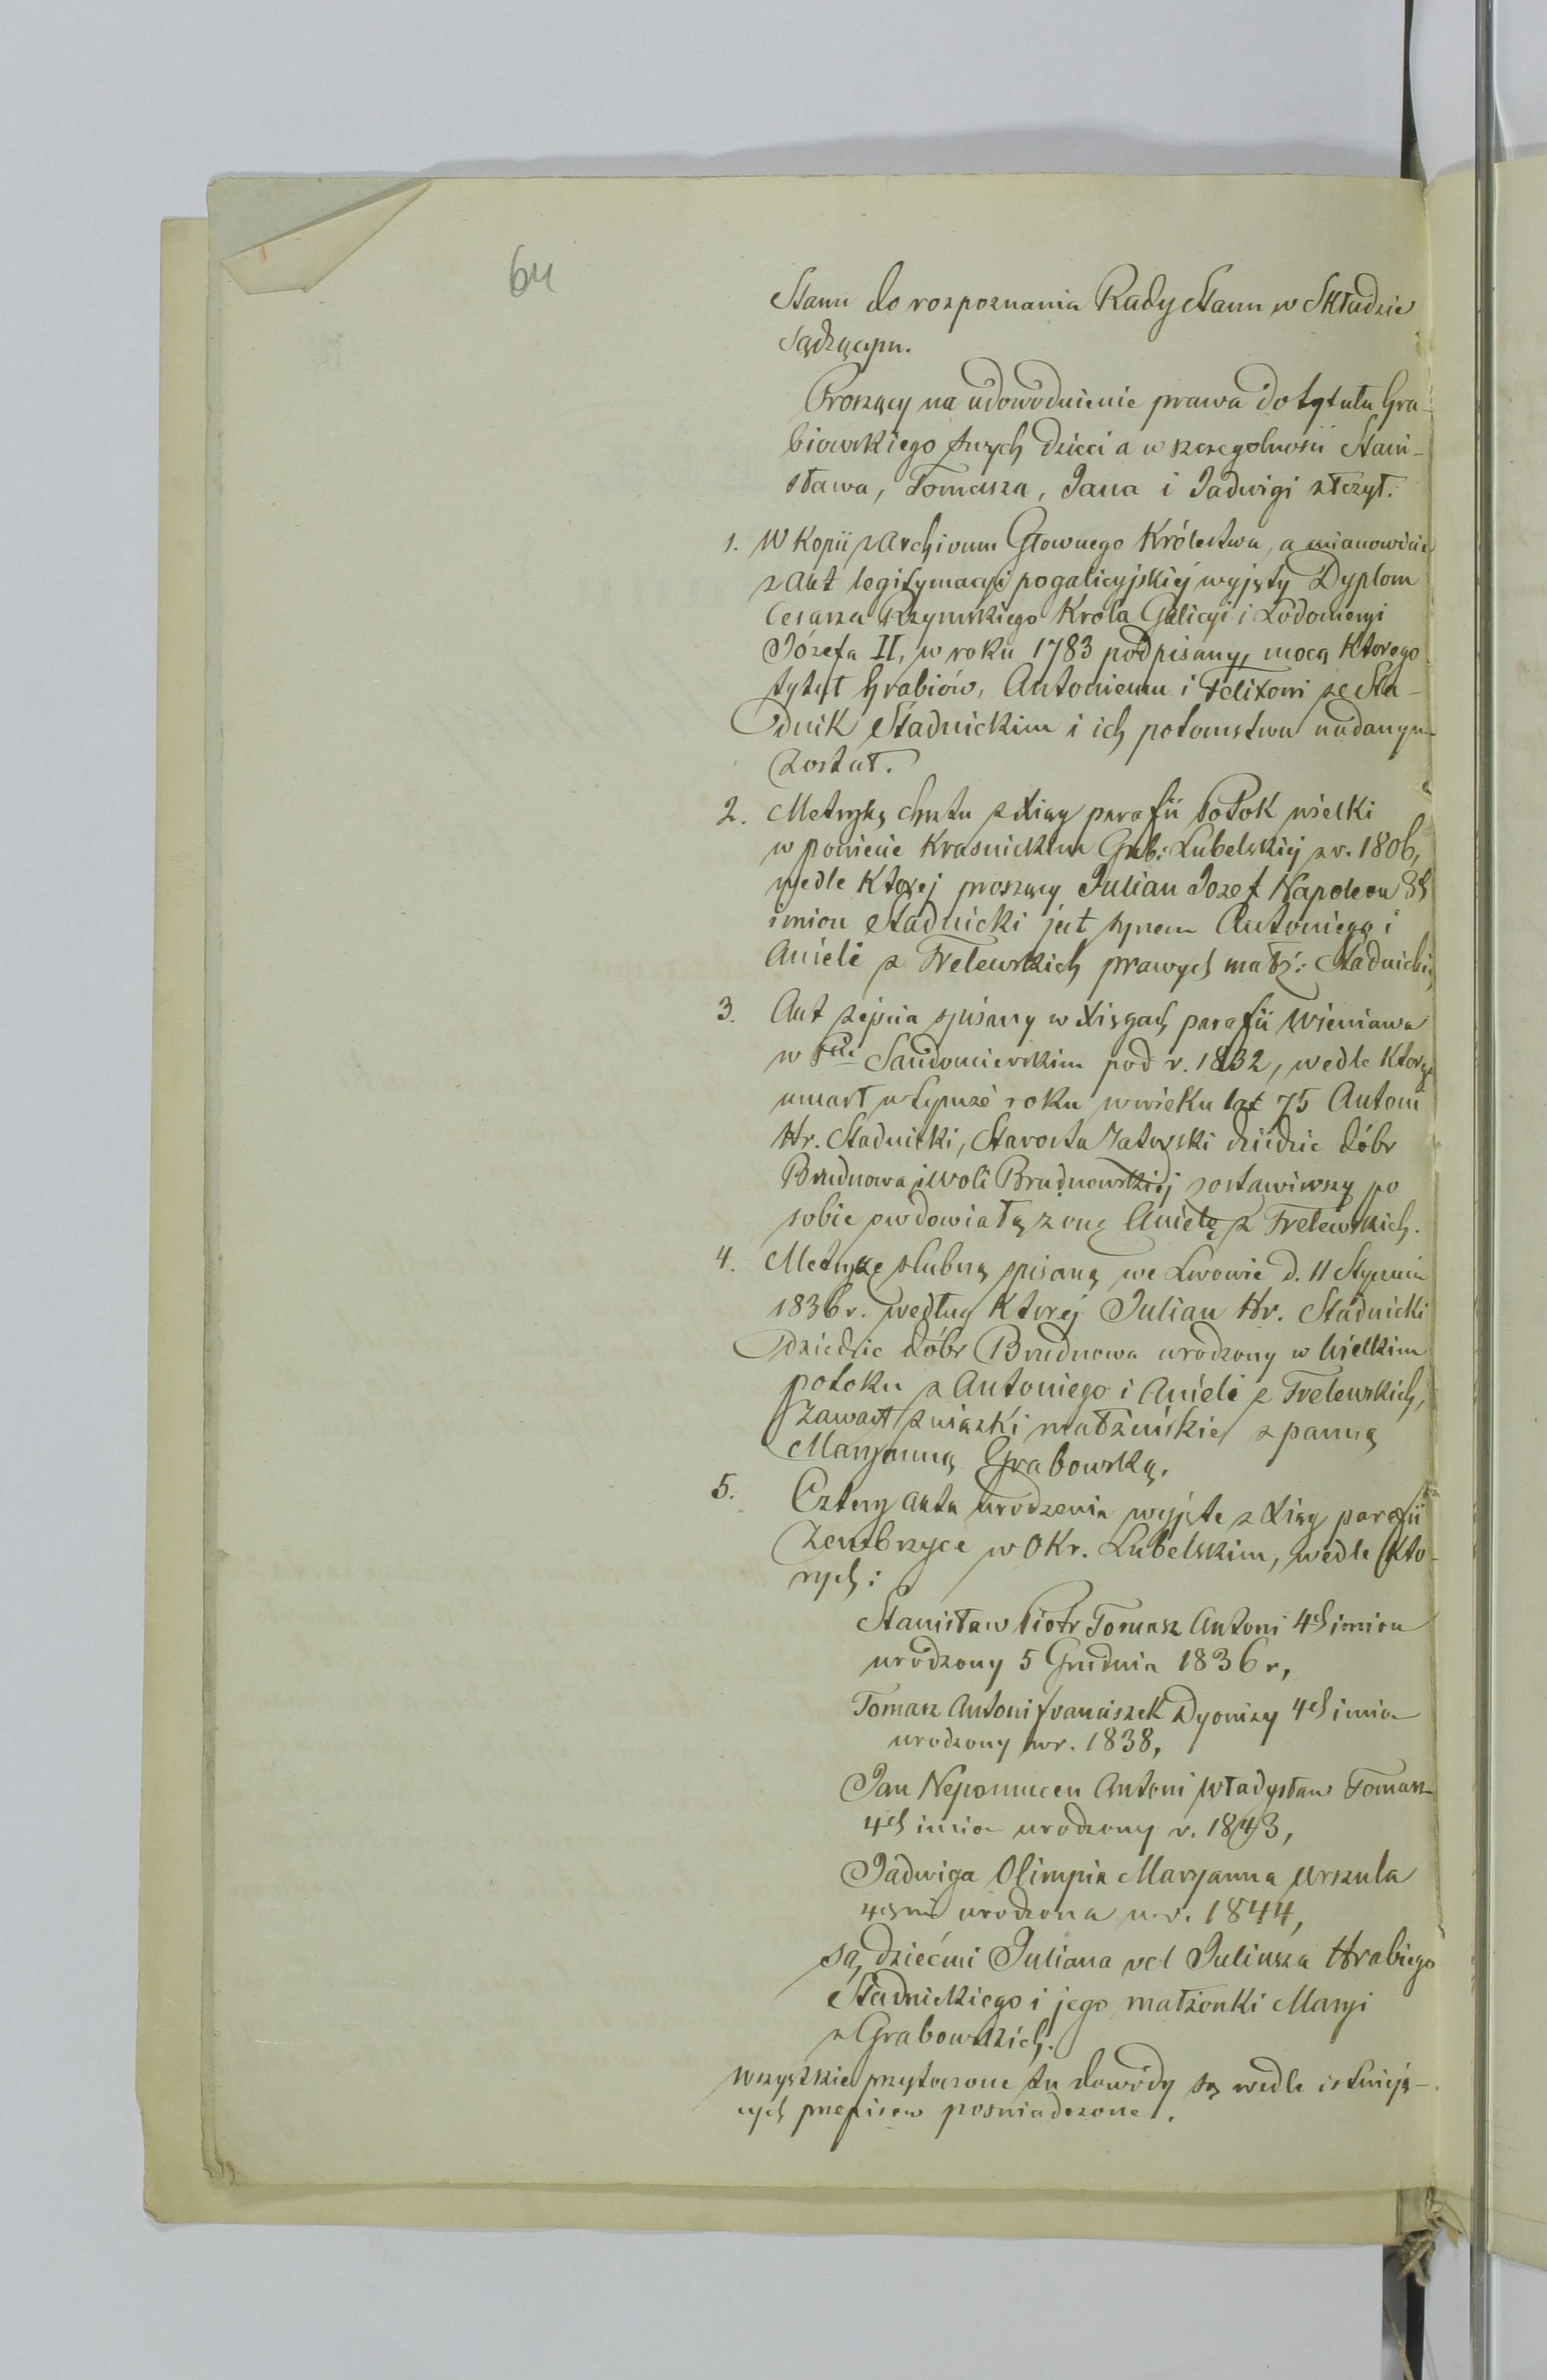 64
Stanu do rozpoznania Rady Stanu w Składzie
Sądzącym.
Proszący na udowodnienie prawa do tytułu Hra-
biowskiego swych dzieci a w szczegolności Stani-
sława, Tomasza, Jana i Jadwigi złożył:
1. W Kopii z Archivum Głownego Królestwa, a mianowicie
z akt legitymacyi pogalicyjskiej wyjęty Dyplom
Cesarza Rzymskiego Krola Galicyi i Lodomeryi
Józefa II, w roku 1783 podpisany, mocą Ktorego
tytuł Hrabiów, Antoniemu i Felixowi ze Sta-
dnik Stadnickim i ich potomstwu nadanym
został.
2. Metrykę chrztu z Xiąg parafii Potok wielki
w powiecie Krasnickim Gub: Lubelskiej z r. 1806,
wedle Ktorej proszący Julian Jozef Napoleon 3ch
imion Stadnicki jest synem Antoniego i
Anieli z Trelewskich prawych małż: Stadnickich
3. Akt zejścia spisany w Xięgach parafii Wieniawa
w Pcie Sandomierskim pod r. 1832, wedle Ktorego
umarł w tymże roku w wieku lat 75 Antoni
Hr. Stadnicki, Starosta Zatorski dziedzic dóbr
Brudnowa i Woli Brudnowskiej zostawiwszy po
sobie owdowiałą żonę Anielę z Trelewskich.
4. Metrykę slubną spisaną we Lwowie d. 11 Stycznia
1836 r. według Ktorej Julian Hr. Stadnicki
Dziedzic dóbr Brudnowa urodzony w Wielkim
potoku z Antoniego i Anieli z Trelewskich,
Zawarł związki małżeńskie z panną
Maryanną Grabowską.
5. Cztery akta urodzenia wyjęte z Xiąg parafii
Zembrzyce w Okr. Lubelskim, wedle Kto-
rych:
Stanisław Piotr Tomasz Antoni 4ch imion
urodzony 5 Grudnia 1836 r,
Tomasz Antoni Franciszek Dyonizy 4ch imion
urodzony w r. 1838,
Jan Nepomucen Antoni Władysław Tomasz
4ch imion urodzony r. 1843,
Jadwiga Olimpia Maryanna Urszula
4ch im urodzona w r. 1844,
są dziećmi Juliana vel Juliusza Hrabiego
Stadnickiego i jego małżonki Maryi
z Grabowskich.
Wszystkie przytoczone tu dowody są wedle istnieją-
cych przepisow poswiadczone.